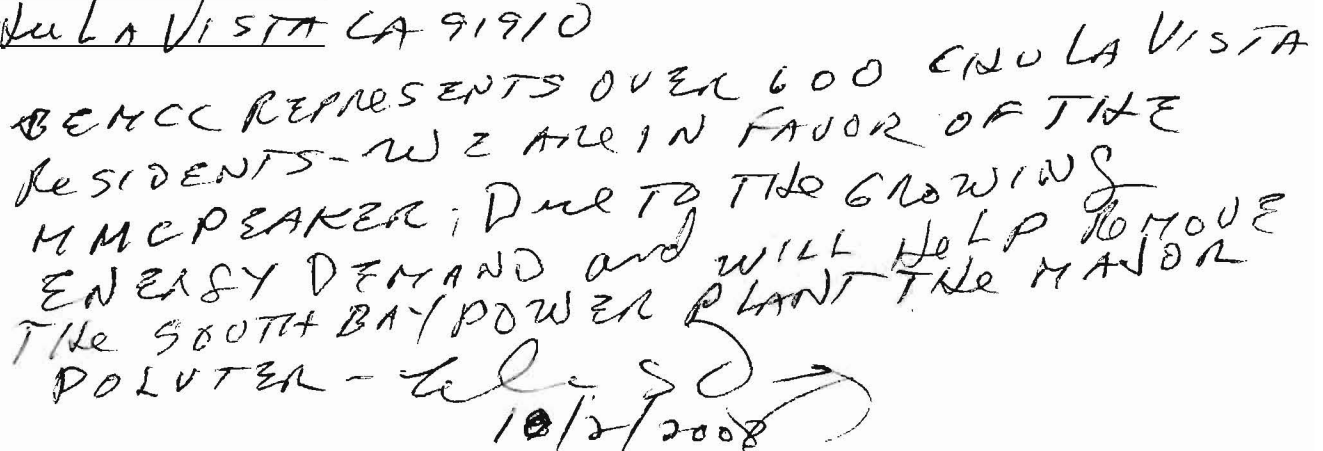 HULA VISTA CA 91910
BEMCC REPRESENTS OVER 600 CHULA VISTA
RESIDENTS - WE ARE IN FAVOR OF THE
MMC PEAKER; Due TO THe GROWING
ENERGY DEMAND and WILL HeLP REMOVE
THe SOUTH BAY POWER PLANT THe MAJOR
POLUTER -
10/2/2008